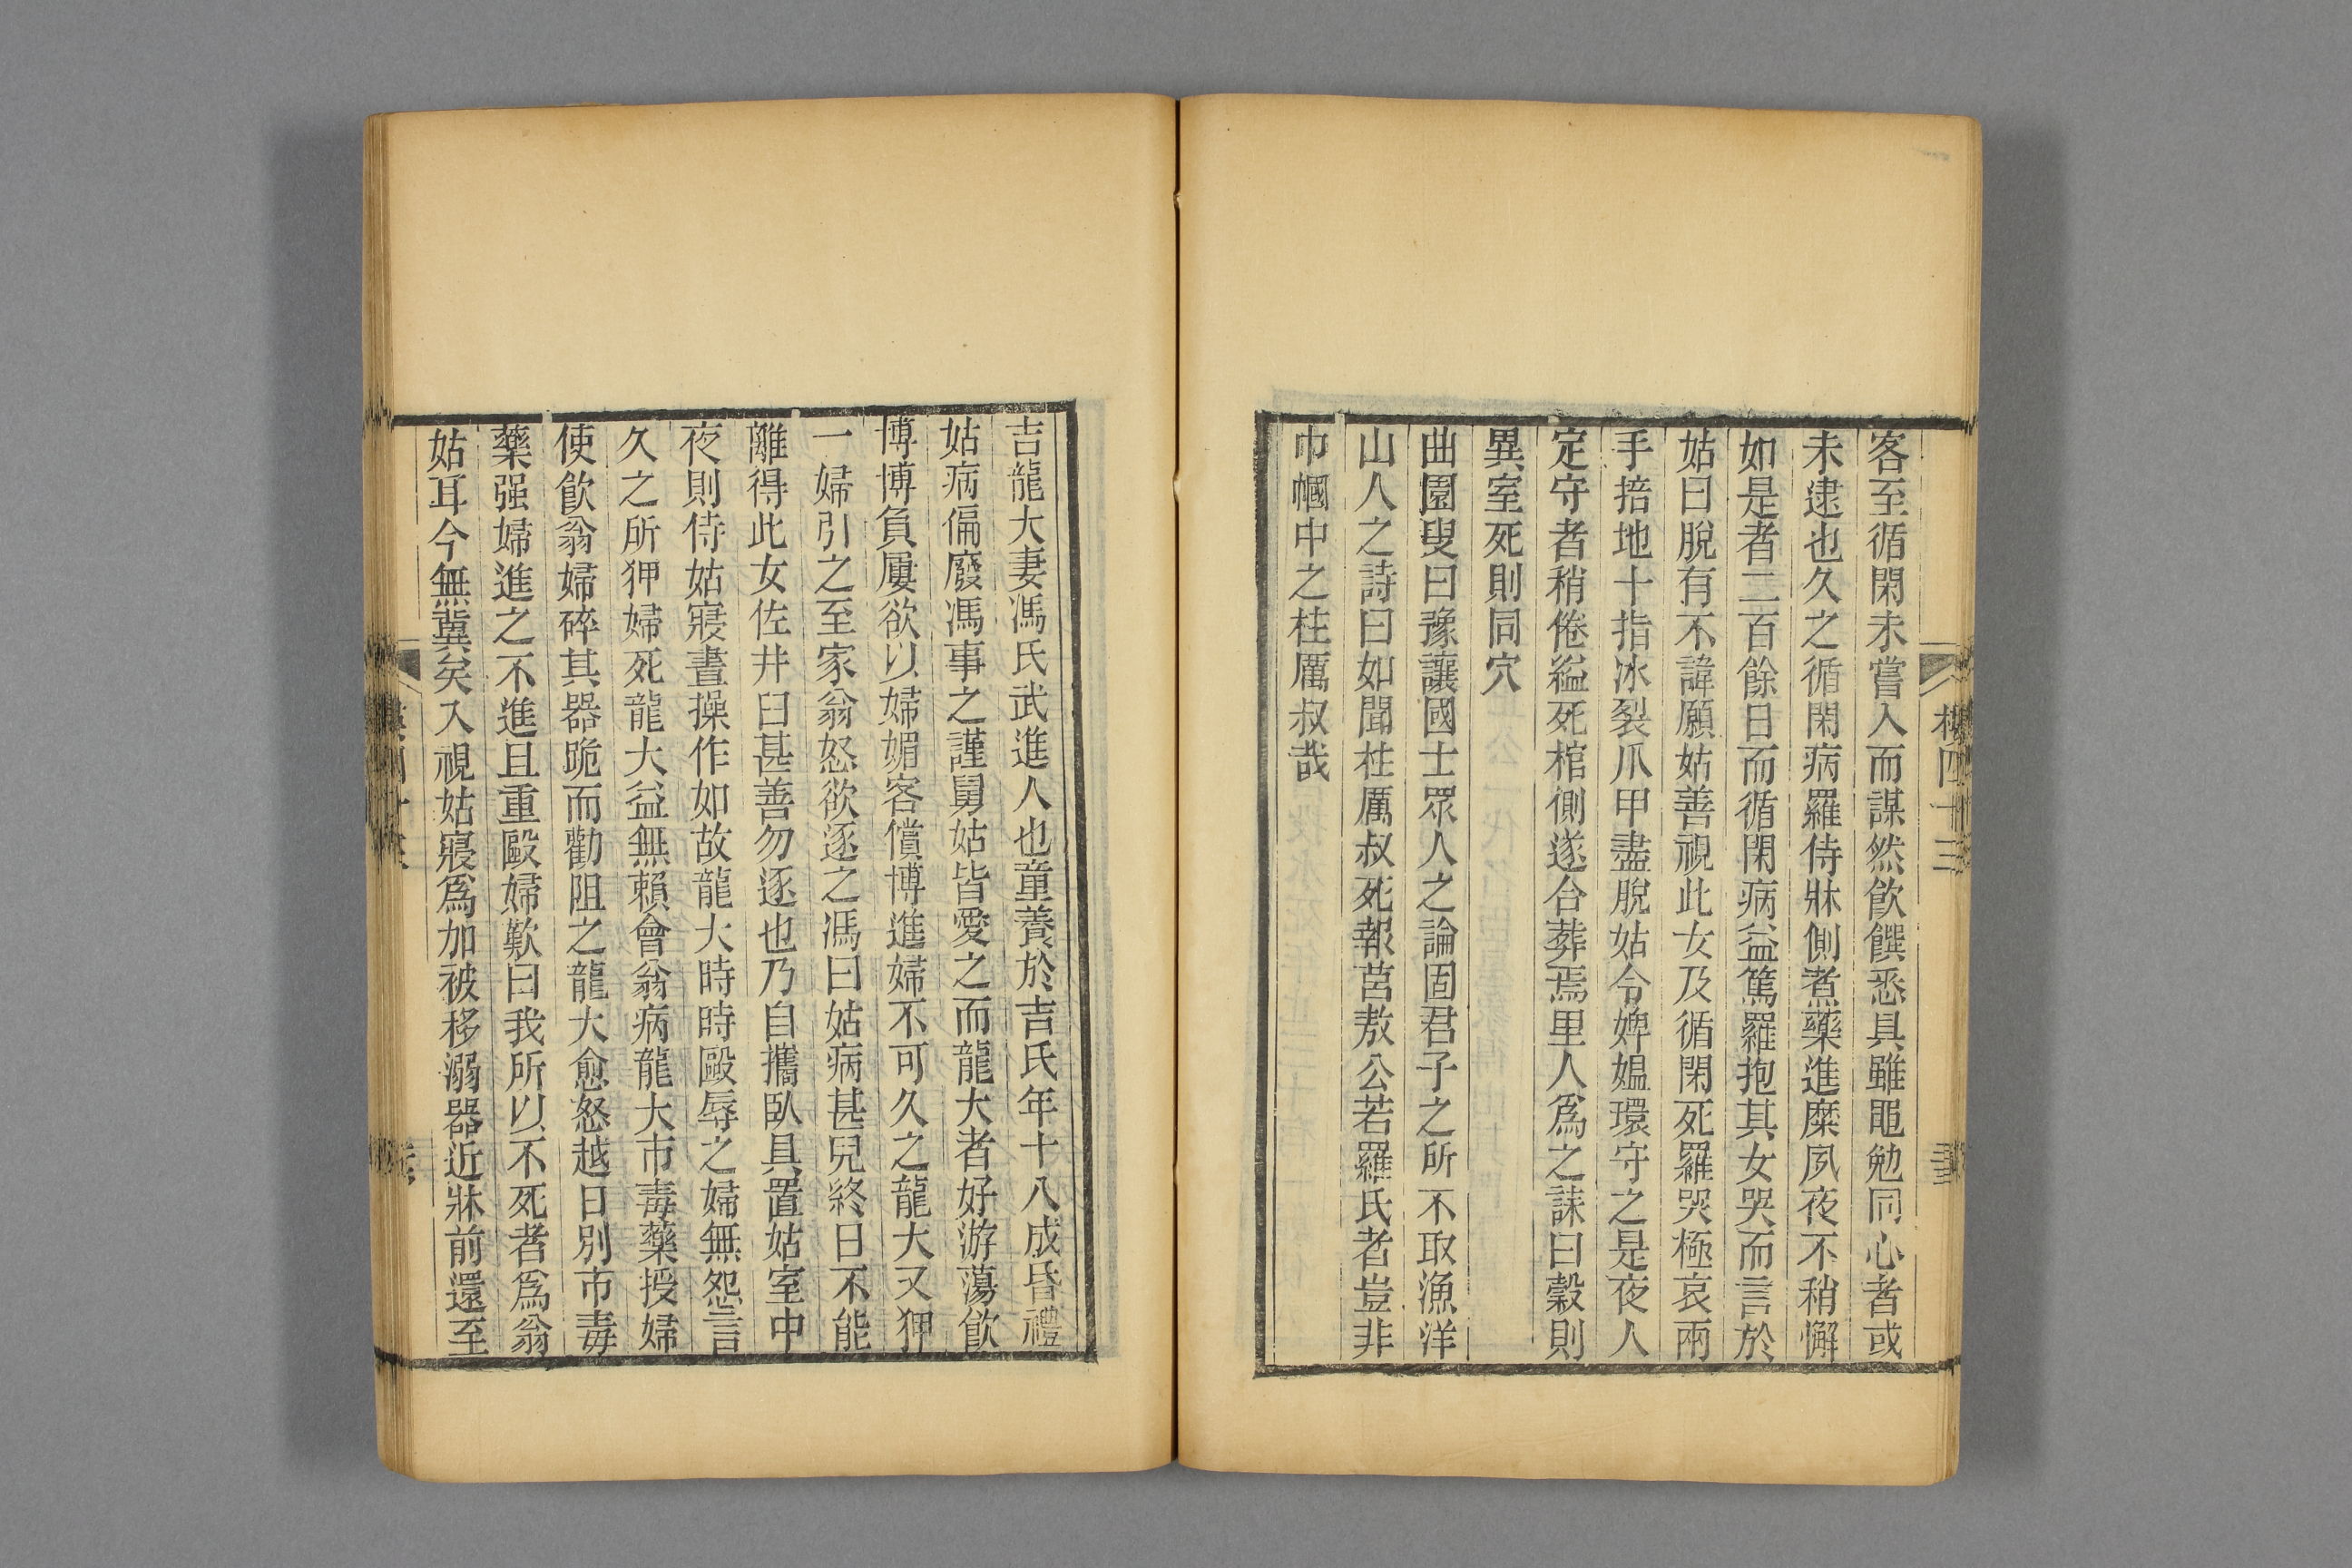 客至循閑未嘗入而謀然飲饌悉具雖黽勉同心者或
未逮也久之循閑病羅侍牀側煮藥進糜夙夜不稍懈
如是者二百餘日而循閑病益篤羅抱其女哭而言於
姑曰脫有不諱願姑善視此女及循閑死羅哭極哀兩
手掊地十指冰裂爪甲盡脫姑令婢媼環守之是夜人
定守者稍倦縊死棺側遂合葬焉里人爲之誄曰穀則
異室死則同穴
曲園叟曰豫讓國士眾人之論固君子之所不取漁洋
山人之詩曰如聞柱厲叔死報莒敖公若羅氏者豈非
巾幗中之柱厲叔哉
吉龍大妻馮氏武進人也童養於吉氏年十八成昏禮
姑病偏廢馮事之謹舅姑皆愛之而龍大者好游蕩飲
博博負屢欲以婦媚客償博進婦不可久之龍大又狎
一婦引之至家翁怒欲逐之馮曰姑病甚兒終日不能
離得此女佐井臼甚善勿逐也乃自攜臥具置姑室中
夜則侍姑寢晝操作如故龍大時時毆辱之婦無怨言
久之所狎婦死龍大益無賴會翁病龍大市毒藥授婦
使飲翁婦碎其器跪而勸阻之龍大愈怒越日別市毒
藥强婦進之不進且重毆婦歎曰我所以不死者爲翁
姑耳今無冀矣入視姑寢爲加被移溺器近牀前還至